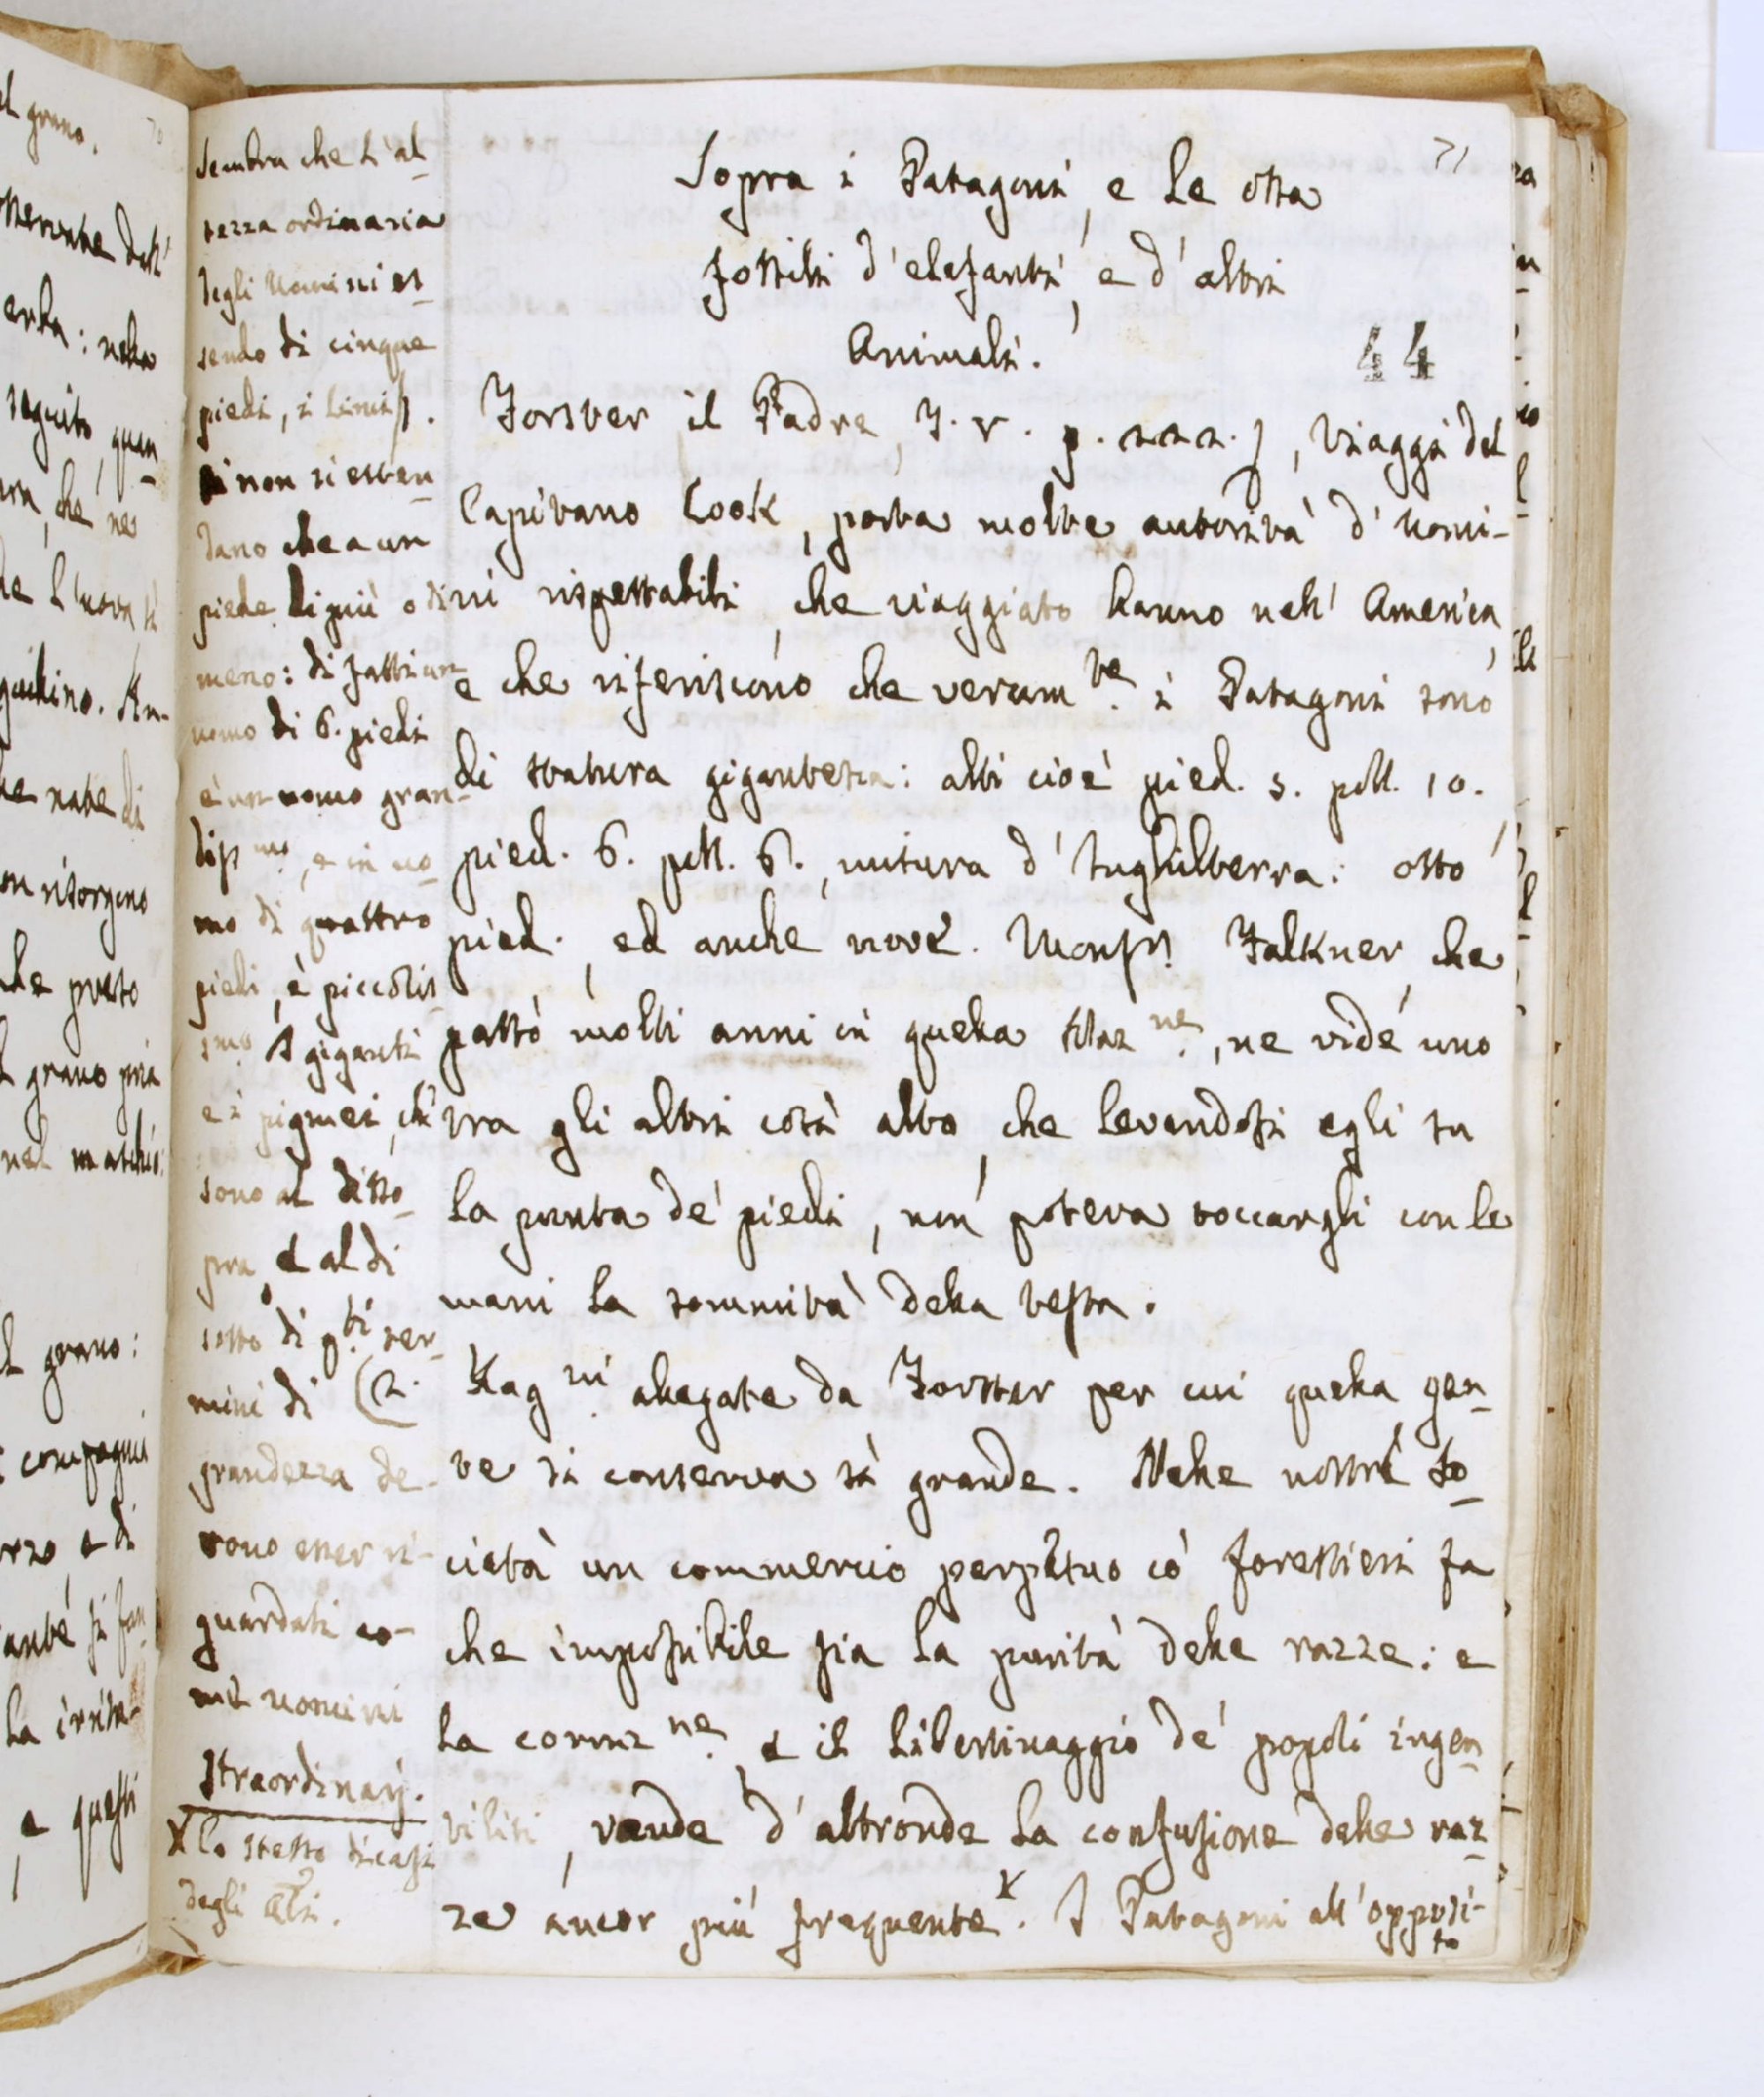 71
Sopra i Patagoni, e le ossa
fossili d'elefanti, e d'altri
Animali.
44
Forster il Padre T. V. p. 222.), Viaggi del
Capitano Cook, porta molte autorità d'uomi-
ni rispettabili, che viaggiato hanno nell'America,
e che riferiscono che veram.te i Patagoni sono
di statura gigantesca: alti cioè pied. 5. poll. 10.
pied. 6. poll. 6., misura d'Inghilterra: otto
pied., ed anche nove. Falkner, che
passò molti anni in quella ne, ne vide uno
tra gli altri così alto, che levandosi egli su
la punta de' piedi, non poteva toccargli con le
mani la sommità della testa.
Rag.ni allegate da Forster per cui quella gen-
te si conserva sì grande. Nelle nostre so-
cietà un commercio perpetuo co' forestieri fa
che impossibile sia la purità delle razze: e
la corruz.ne, e il libertinaggio de' popoli ingen-
tiliti, rende d'altronde la confusione delle raz-
ze ancor più frequente X. I Patagoni all'opposi-
to
Sembra che l'al-
tezza ordinaria
degli uomini es-
sendo di cinque
piedi, i limiti
non si esten-
dano che a un
piede di più o di
meno: di fatti un
uomo di 6. piedi
è un uomo gran-
diss.mo, e un uo-
mo di quattro
piedi, è piccolis-
simo. I giganti
e i pigmei, ch'
sono al disso-
pra, e al di
sotto di q.ti ter-
mini di
grandezza de-
vono esser ri-
guardati co-
me uomini
straordinarj.
X lo stesso dicasi
degli